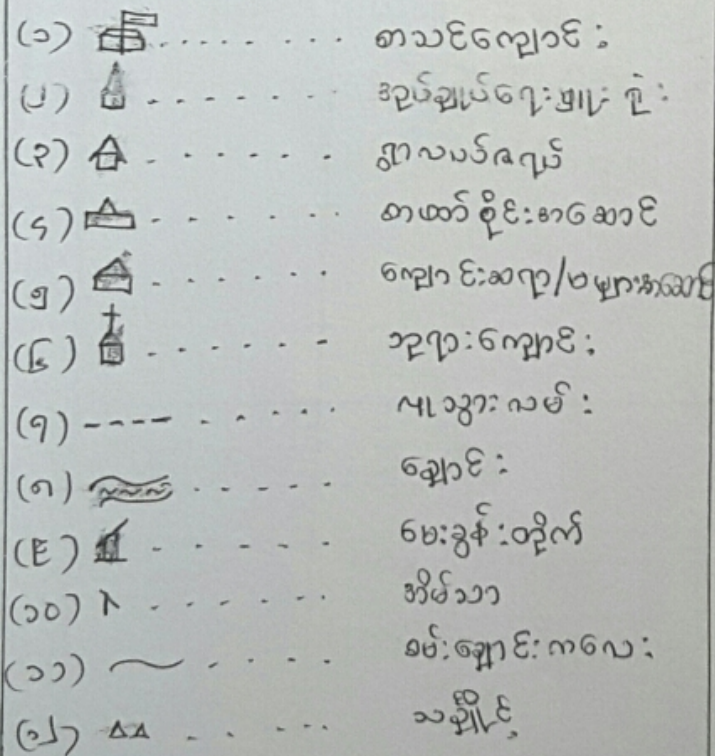 (၁) ......... စာသင်ကျောင်း
(၂) ....... အုပ်ချုပ်ရေးမှူး ရုံး
(၃) ...... ရွာလယ်ဇရပ်
(၄) ....... တပ်စိုင်းအဆောင်
(၅) ...... ကျောင်းဆရာ/မများအဆောင်
(၆) ...... ဘုရားကျောင်း
(၇) ---- ..... လူသွားလမ်း
(၈) ..... ချောင်း
(၉) ..... မေးခွန်းတိုက်
(၁၀) ...... အိမ်သာ
(၁၁) .... စမ်းချောင်းကလေး
(၁၂) ..... သင်္ချိုင်း